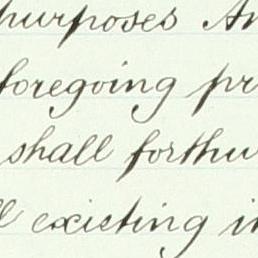 purposes An
foregoing pr
shall forthw
l existing i